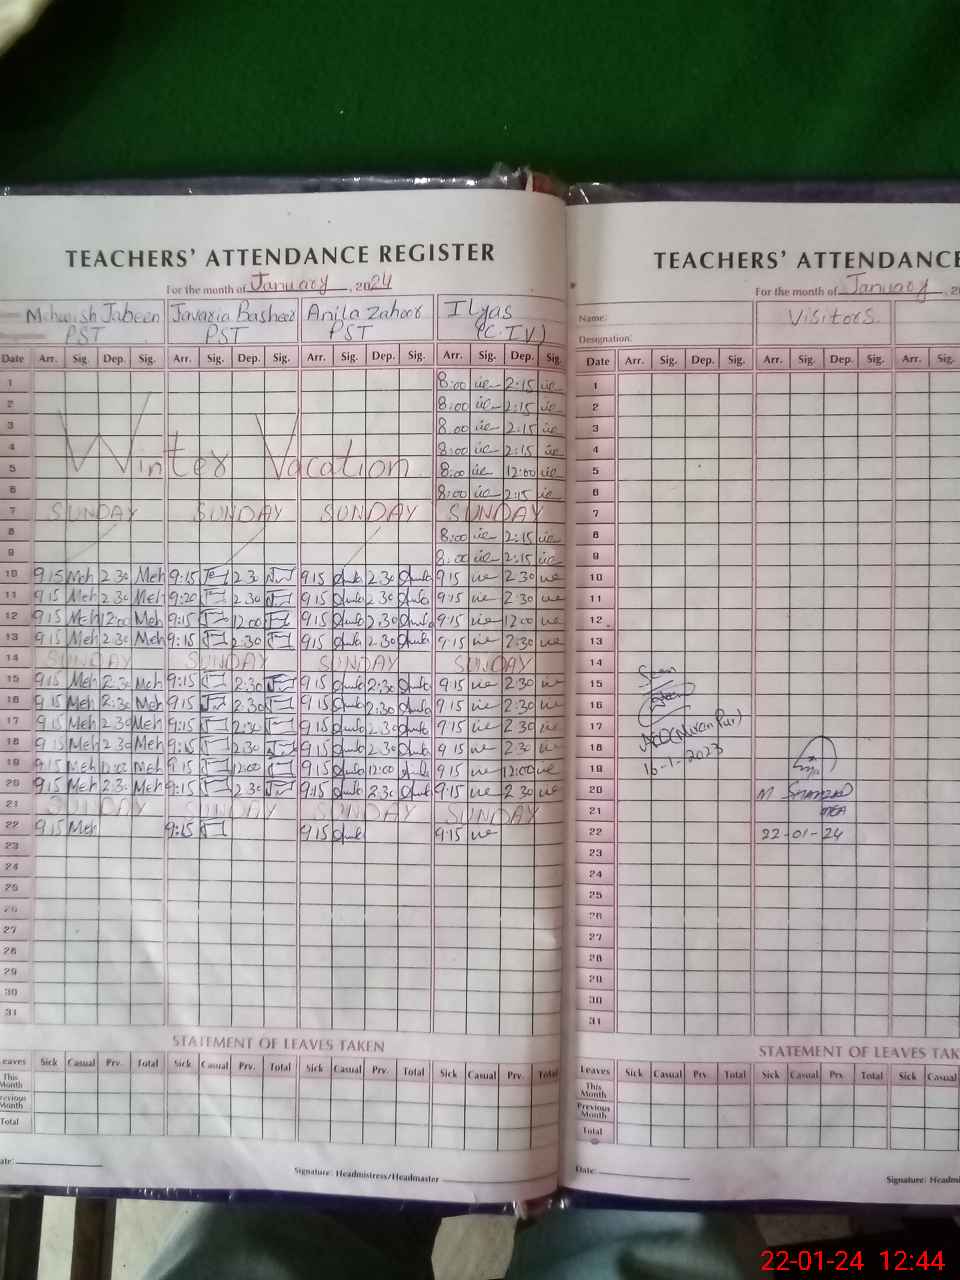 TEACHERS' ATTENDANCE REGISTER
For the month of January, 2024
Mehwish Jabeen Javaria Basheer Anila Zahoor Ilyas
PST PST PST (C-IV)
Date Arr. Sig. Dep. Sig. Arr. Sig. Dep. Sig. Arr. Sig. Dep. Sig. Arr. Sig. Dep. Sig.
1 8:00 2:15
2 8:00 2:15
3 8:00 2:15
4 8:00 2:15
Winter Vacation
5 8:00 12:00
6 8:00 2:15
7 SUNDAY SUNDAY SUNDAY SUNDAY
8 8:00 2:15
9 8:00 2:15
10 9 15 Meh 2 30 Meh 9:15 2 3 9 15 2.30 9 15 2 30
11 9 15 Meh 2 30 Meh 9:20 2 30 9 15 2 30 9 15 2 30
12 9 15 Meh 12 00 Meh 9:15 12 00 9 15 2.30 9:15 12 00
13 9 15 Meh 2 30 Meh 9:15 2 30 9 15 2.30 9:15 2 30
14 SUNDAY SUNDAY SUNDAY SUNDAY
15 9 15 Meh 2 30 Meh 9:15 2:30 9 15 2:30 9:15 2 30
16 9 15 Meh 2:30 Meh 9:15 2:30 9 15 2:30 9 15 2 30
17 9 15 Meh 2 30 Meh 9:15 2:30 9 15 2.30 9 15 2 30
18 9 15 Meh 2 30 Meh 9:15 2 30 9 15 2 30 9 15 2 30
19 9 15 Meh 12:00 Meh 9:15 12:00 9 15 12:00 9 15 12:00
20 9 15 Meh 2 30 Meh 9:15 2 30 9 15 2 30 9:15 2 30
21 SUNDAY SUNDAY SUNDAY SUNDAY
22 9 15 Meh 9:15 9 15 9:15
23
24
25
26
27
28
29
30
31
STATEMENT OF LEAVES TAKEN
eaves Sick Casual Prv. Total Sick Casual Prv. Total Sick Casual Prv. Total Sick Casual Prv. Total
This Month
revious Month
Total
ate:
Signature: Headmistress/Headmaster
TEACHERS' ATTENDANCE
For the month of January
Name: Visitors
Designation:
Date Arr. Sig. Dep. Sig. Arr. Sig. Dep. Sig. Arr. Sig.
1
2
3
4
5
6
7
8
9
10
11
12
13
14
15
16
17
18
19 16-1-2023
20
21
22 22-01-24
23
24
25
26
27
28
29
30
31
STATEMENT OF LEAVES TAK
Leaves Sick Casual Prv. Total Sick Casual Prv. Total Sick Casual
This Month
Previous Month
Total
Date:
Signature: Headmi
22-01-24 12:44